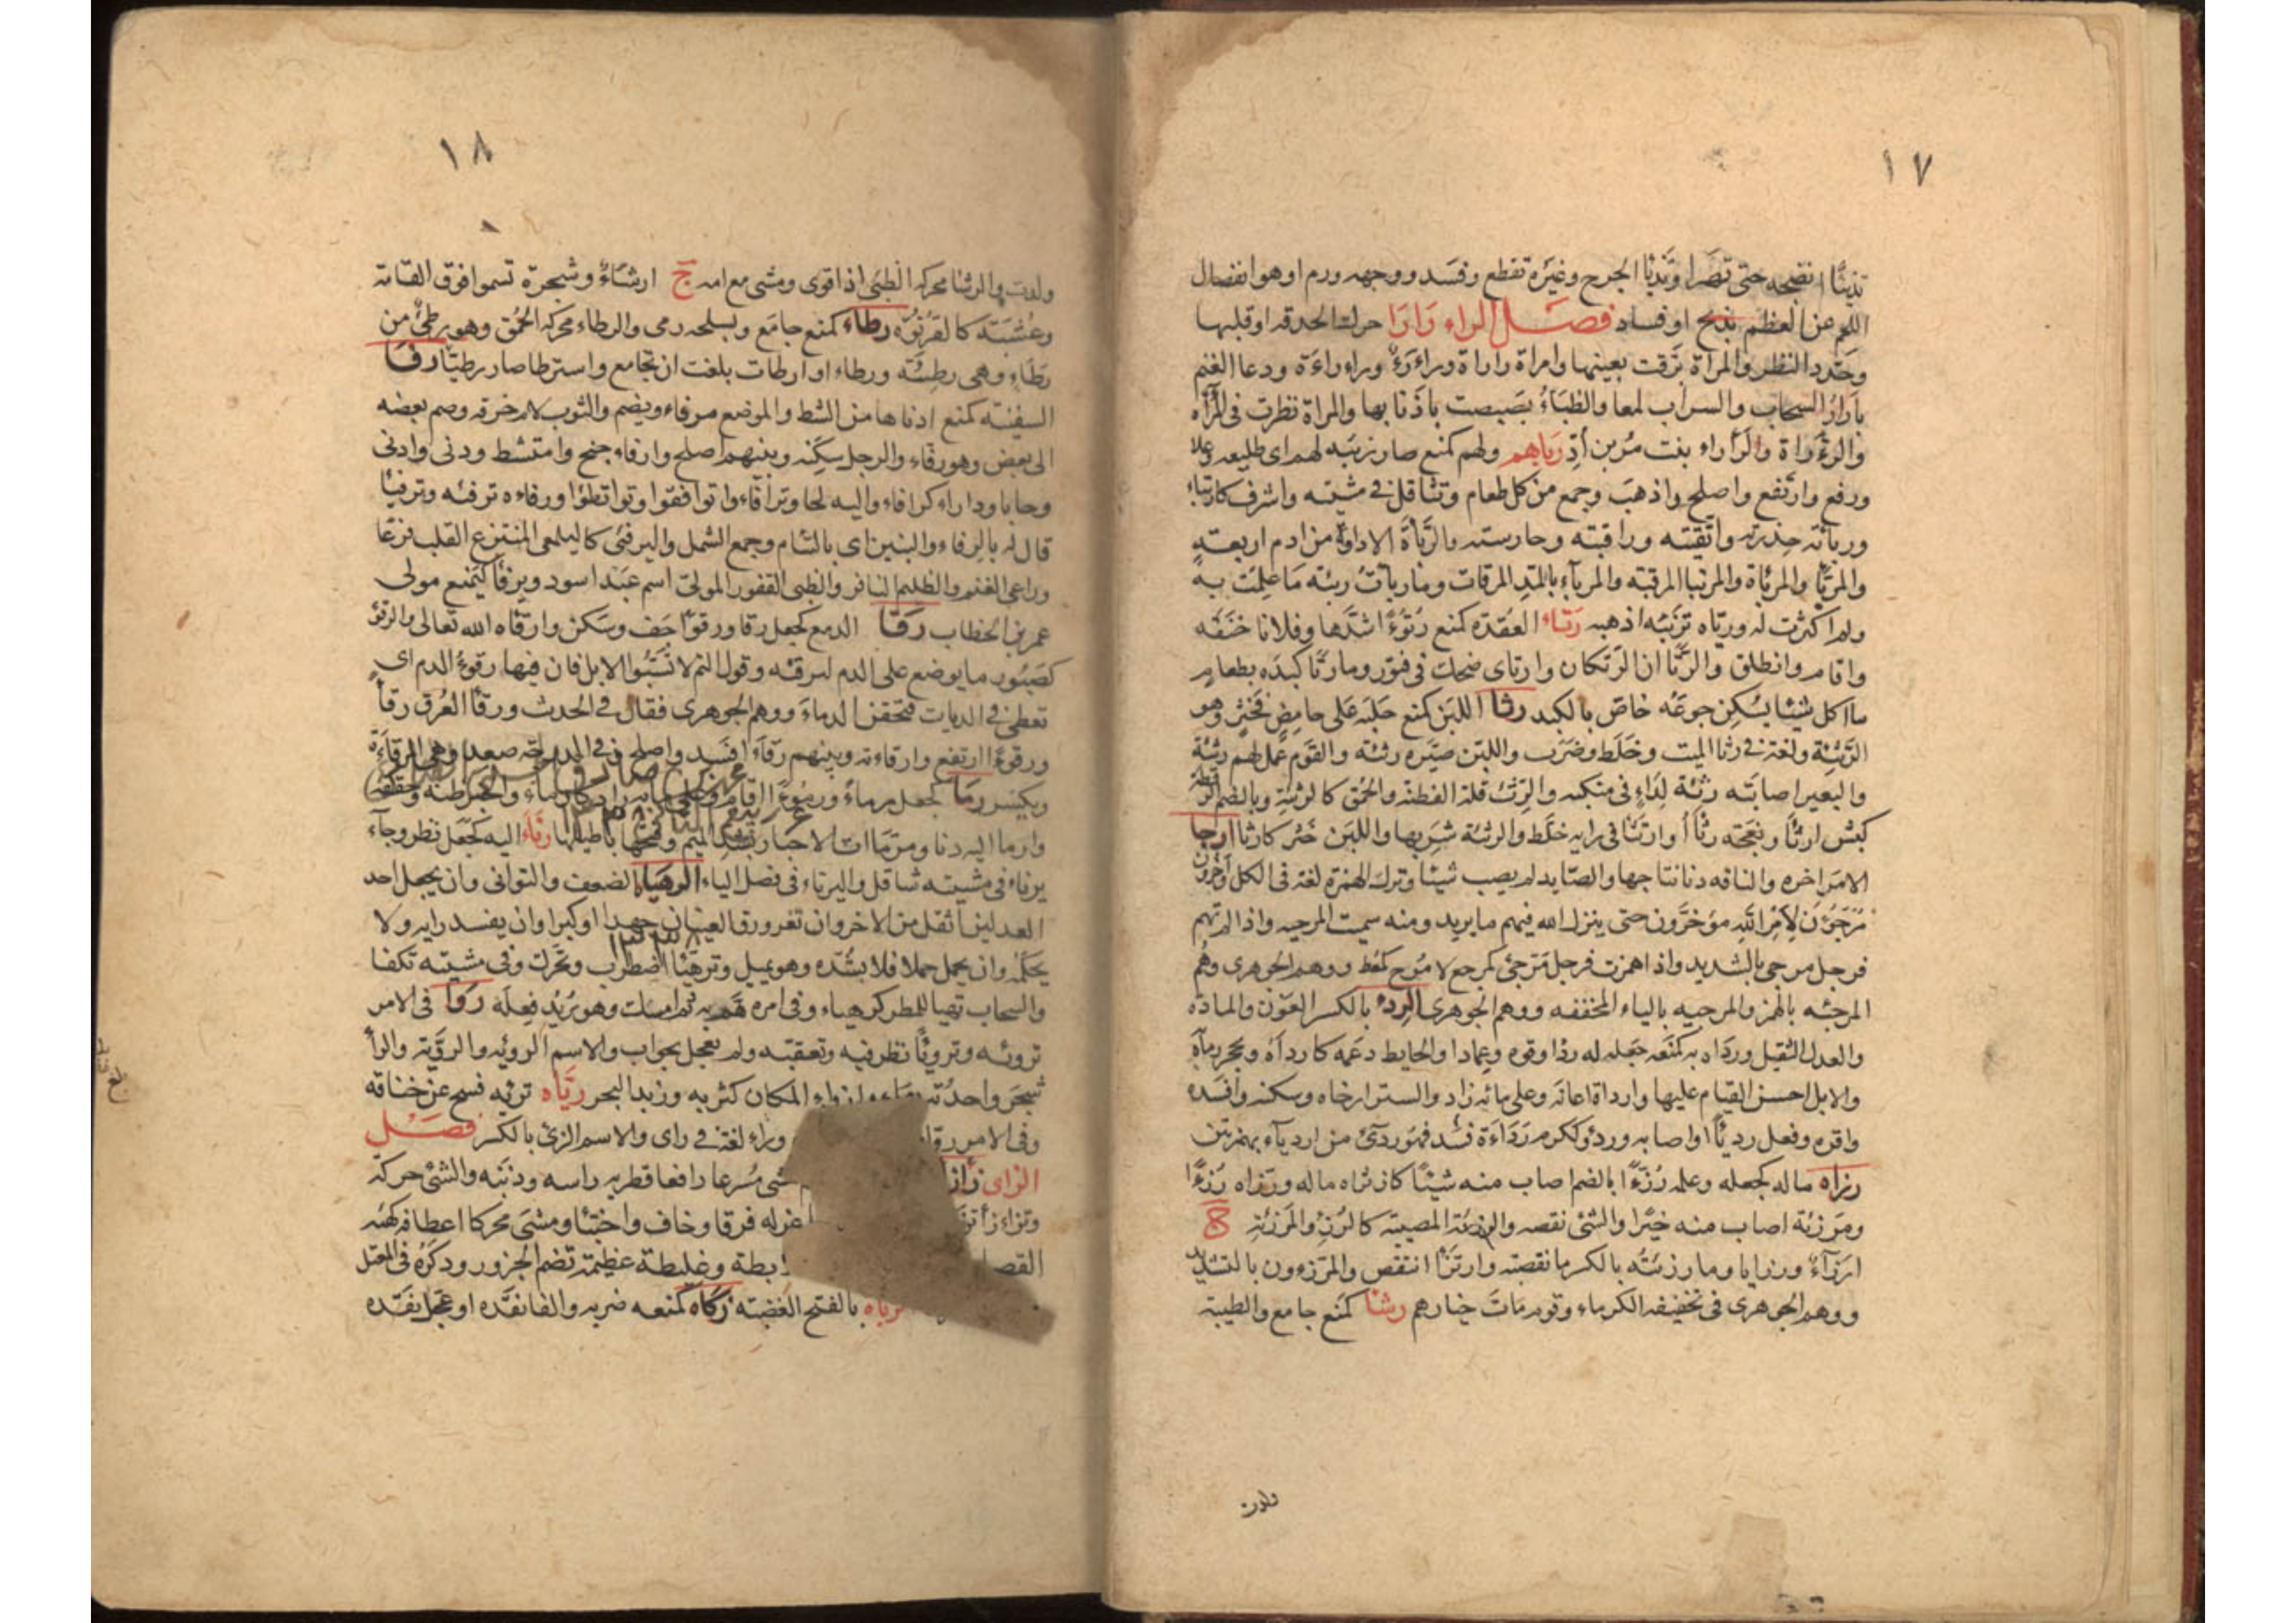 ١٧
تذيئا انضجه حتى تهرا وتذيا الجرح وغيره تقطع وفسد ووجهه ورم او هو انفصال
اللحم عن العظم بذبح او فساد فصل الراء رارا حرك الحدقه او قلبها
وحدد النظر والمراة برقت بعينها وامراة راراة وراراء وراراءة ودعا الغنم
بارار السحاب والسراب لمعا والظباء بصبصت باذنابها والمراة نظرت في المرآه
والراراة والراراء بنت مر بن أد رباهم ولهم كمنع صار ربئة لهم اى طليعه وعلا
ورفع وارتفع واصلح واذهب وجمع من كل طعام وتثاقل في مشيته واشرف كارتباء
ورباته حذرته واتقيته وراقبته وحارسته والرباة الاداوة من ادم اربعة
والمربا والمرباة والمرتبا المرقبته والمرباء بالمد المرقات وما ربات ربئه ما علمت به
ولم اكترث له ورباه تربئه اذهبه رتاء العقدة كمنع رتوءا اشدها وفلانا خنقه
واقام وانطلق والرتا ان الرتكان وارتاى ضحك في فتور وما رتا كبده بطعام
ما اكل شيئا يسكن جوعه خاص بالكبد رثا اللبن كمنع حلبه على حامض فخثر وهو
الرثيئة ولغة في رثا الميت وخلط وضرب واللبن صيره رثيئه والقوم عمل لهم رثيئة
والبعير اصابته رثئة لداء في منكبه والرثء قلة الفطنه والحمق كالرثيئة وبالضم الرقطة
كبش ارثا ونعجته رثاء وارتثا في رايه خلط والرثيئة شربها واللبن خثر كارثا ارجا
الامر اخره والناقه دنا نتاجها والصايد لم يصب شيئا وترك الهمزة لغة في الكل آخرون
مرجؤن لامر الله مؤخرون حتى ينزل الله فيهم ما يريد ومنه سميت المرجيه واذا لم تهمز
فرجل مرجى بالتشديد واذا همزت فرجل مرجئ كمرجع لا مرج كمعط ووهم الجوهرى وهم
المرجئه بالهمز والمرجيه بالياء المخففه ووهم الجوهرى الردء بالكسر العون والمادة
والعدل الثقيل ورداه به كمنعه جعله له ردا وقوة وعمادا والحايط دعمه كارداه وبحجر رماه
والابل احسن القيام عليها وارداة اعانه وعلى مائه زاد والستر ارخاه وسكنه وافسده
واقره وفعل رديئا او اصابه وردؤ ككرم رداءة فسد فهو ردئ من اردياء بهمزتين
رزاه ماله كجعله وعلمه رزءا بالضم اصاب منه شيئا كارتزاه ماله ورزاه رزءا
ومرزئة اصاب منه خيرا والشئ نقصه والرزيئة المصيبه كالرزء والمرزئة ج
ارزاء ورزايا وما رزئته بالكسر ما نقصته وارتزا انتقص والمرزءون بالتشديد
ووهم الجوهرى في تخفيفه الكرماء وقوم مات خيارهم رشا كمنع جامع والظبية
ولدت
١٨
ولدت والرشا محركة الظبى اذا قوى ومشى مع امه ج ارشاء وشجرة تسموا فوق القامه
وعشبته كالقرنوه رطاء كمنع جامع وبسلحه رمى والرطاء محركة الحمق وهو رطئ من
رطاء وهى رطيئه ورطاء او ارطات بلغت ان تجامع واسترطا صار رطيئا رفا
السفينه كمنع ادناها من الشط والموضع مرفاء ويضم والثوب لام خرقه وضم بعضه
الى بعض وهو رفاء والرجل سكنه وبينهم اصلح وارفاء جنح وامتشط ودنى وادنى
وحابا ودارا كرافاء واليه لجا وترافاءوا توافقوا وتواتطؤا ورفاءه ترفئه وترفيئا
قال له بالرفاء والبنين اى بالتئام وجمع الشمل واليرفئى كاليلمعى المنتزع القلب فزعا
وراعى الغنم والظليم النافر والظبى القفور المولى اسم عبد اسود ويرفا كيمنع مولى
عمر بن الخطاب رقا الدمع كجعل رقا ورقوءا جف وسكن وارقاه الله تعالى والرقؤ
كصبور ما يوضع على الدم ليرقئه وقول اكثم لا تسبوا الابل فان فيها رقوء الدم اى
تعطى في الديات فتحقن الدماء ووهم الجوهرى فقال في الحدث ورقا العرق رقا
ورقوءا ارتفع وارقاءته وبينهم رقاء افسد واصلح وفي الدرجة صعد وهى المرقاءة
وبكسر رما كجعل رماء ورموءا اقام
وارما اليه دنا ومرمات الاخبار بتشديد الميم وفتحها اباطيلها رناء اليه كجعل نظر وجاء
يرناء في مشيته تثاقل واليرناء في فصل الياء الرهياه الضعف والتوانى وان يجعل احد
العدلين اثقل من الاخر وان تغرورق العينان جهدا او كبرا وان يفسد رايه ولا
يحكمه وان يحمل حملا فلا يشده وهو يميل وترهيئا اضطرب وتحرك وفى مشيته تكفا
والسحاب تهيا للمطر كرهياء وفى امره هم به ثم امسك وهو يريد فعله روا فى الامر
تروئه وترويئا نظر فيه وتعقبه ولم يعجل بجواب والاسم الرويه والرويئة والراء
شجر واحدته المكان كثر به وزبد البحر رياه تريئه فسح عن خناقه
وفى الامر وراء لغة في راى والاسم الرئ بالكسر فصل
الزاى زازا مشى مسرعا رافعا قطريه راسه وذنبه والشئ حركه
وتزاءزأ له فرقا وخاف واختبا ومشى محركا اعطافه كهيئه
القصا ابطة وغليظة عظيمة تضم الجزور وذكره فى المعتل
بالفتح الغضبه زكاه كمنعه ضربه والفا نقده او عجل نقده